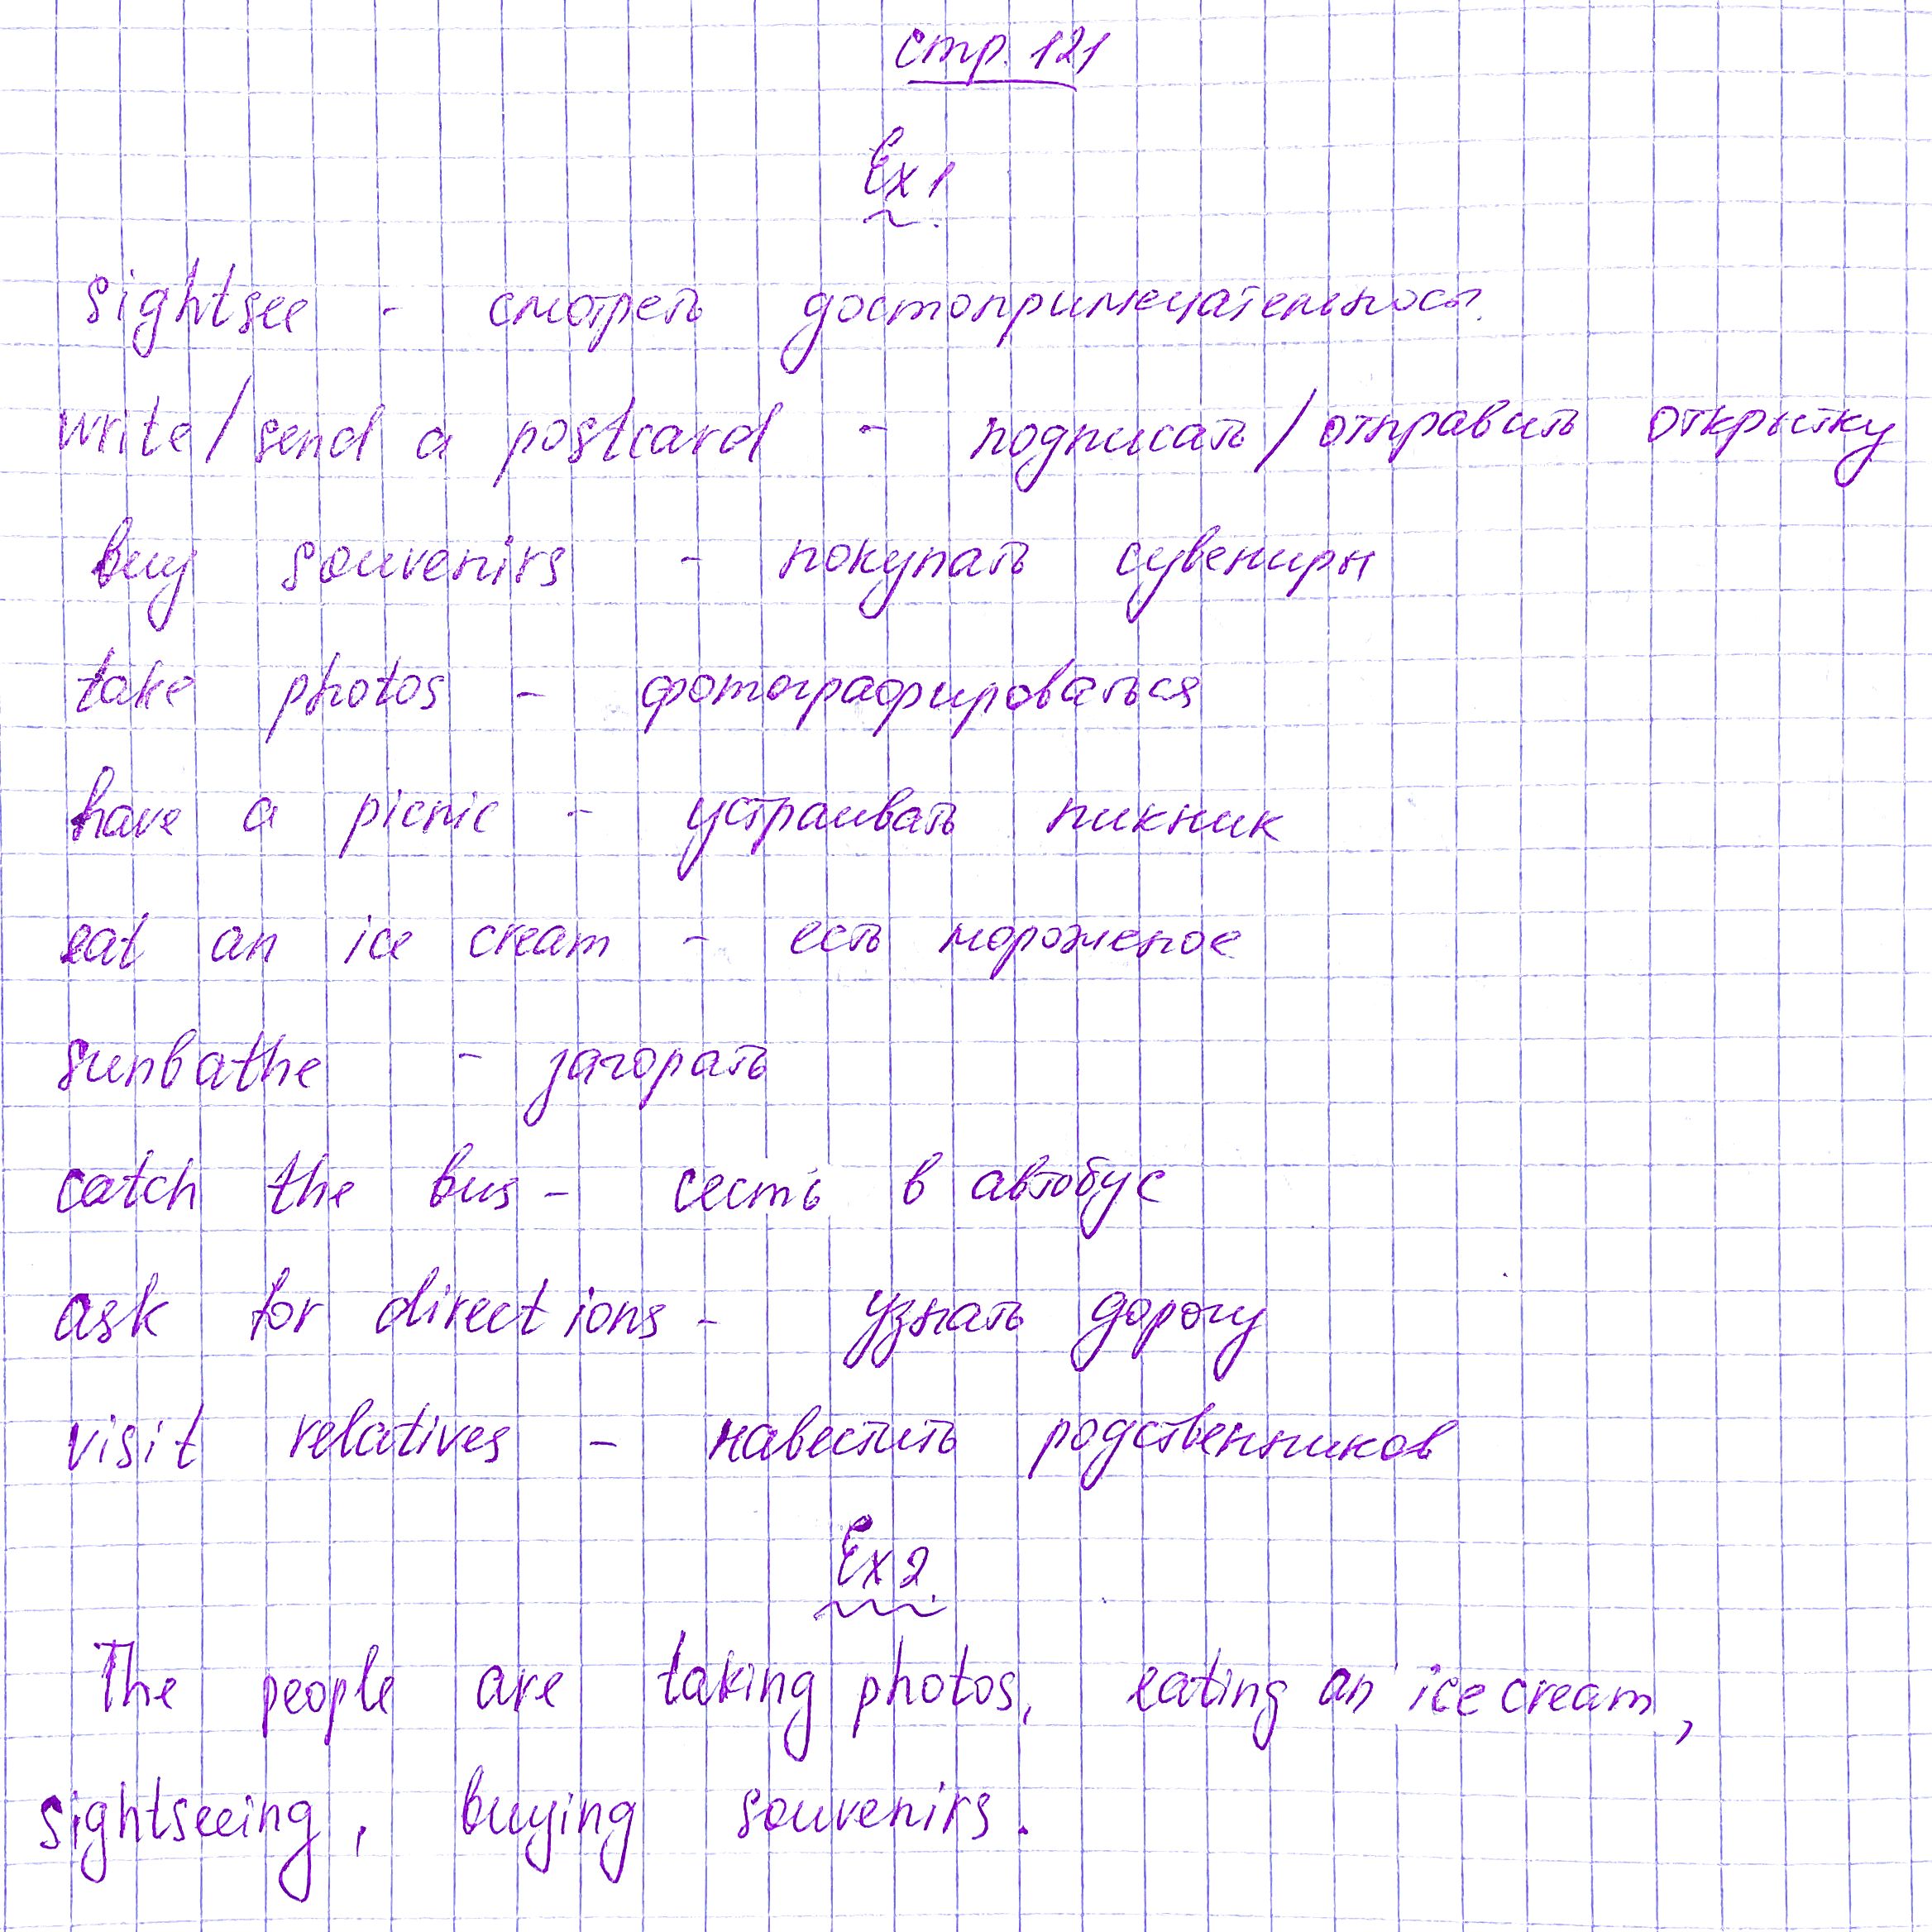 стр. 121
Ex 1.
sightsee - смотреть достопримечательност.
write/send a postcard - подписать/отправить открытку
buy souvenirs - покупать сувениры
take photos - фотографироваться
have a picnic - устраивать пикник
eat an ice cream - есть мороженое
sunbathe - загорать
catch the bus - сесть в автобус
ask for directions - узнать дорогу
visit relatives - навестить родственников
Ex 2.
The people are taking photos, eating an ice cream,
sightseeing, buying souvenirs.